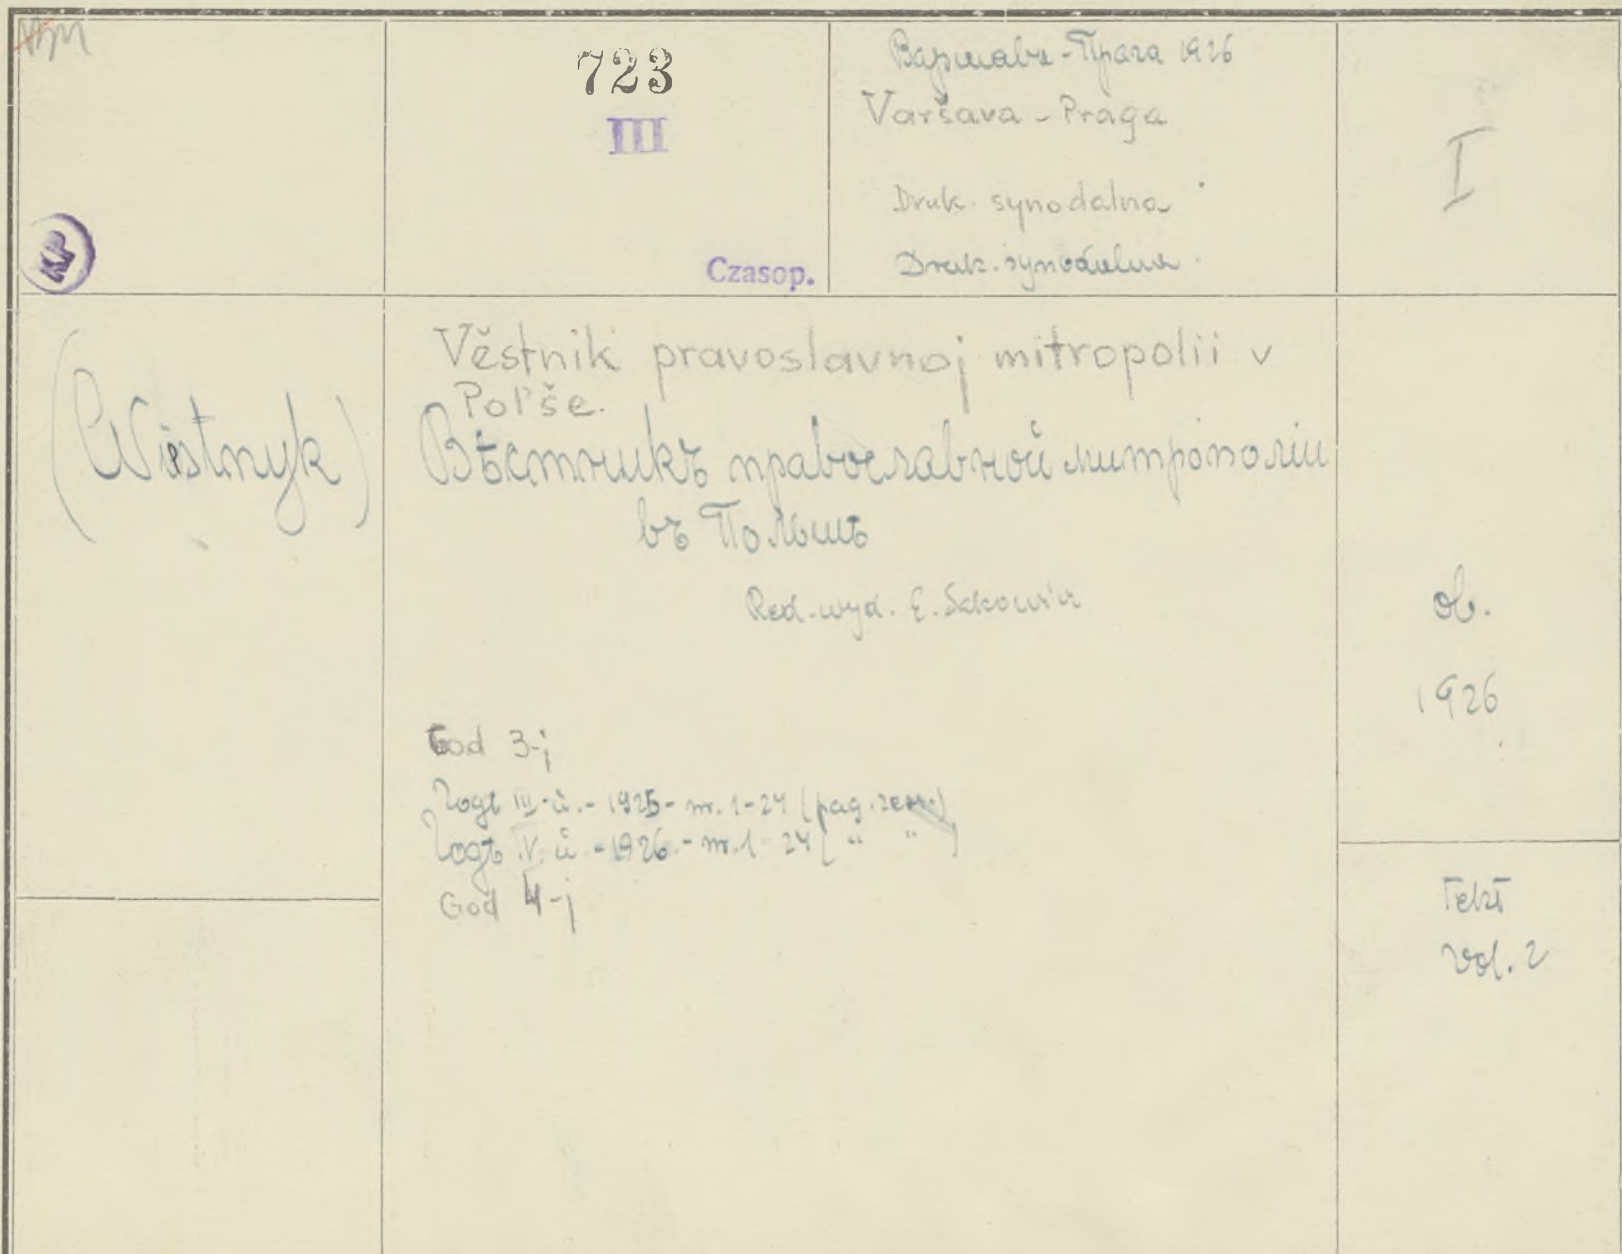 723
III
Czasop.
Варшава-Прага 1926
Varšava - Praga
Druk. synodalna
Druk. synodalna.
I
KP
(Wiestnyk)
Věstnik pravoslavnoj mitropolii v
Pol'še.
Вѣстникъ православной митрополіи
въ Польшѣ
Red.-wyd. E.
ob.
1926
God 3-j
Годъ III-й.-1925- nr. 1-24 (pag. )
Годъ IV-й.-1926.- nr. 1-24 ( " " )
God 4-j
Tekst
vol. 2